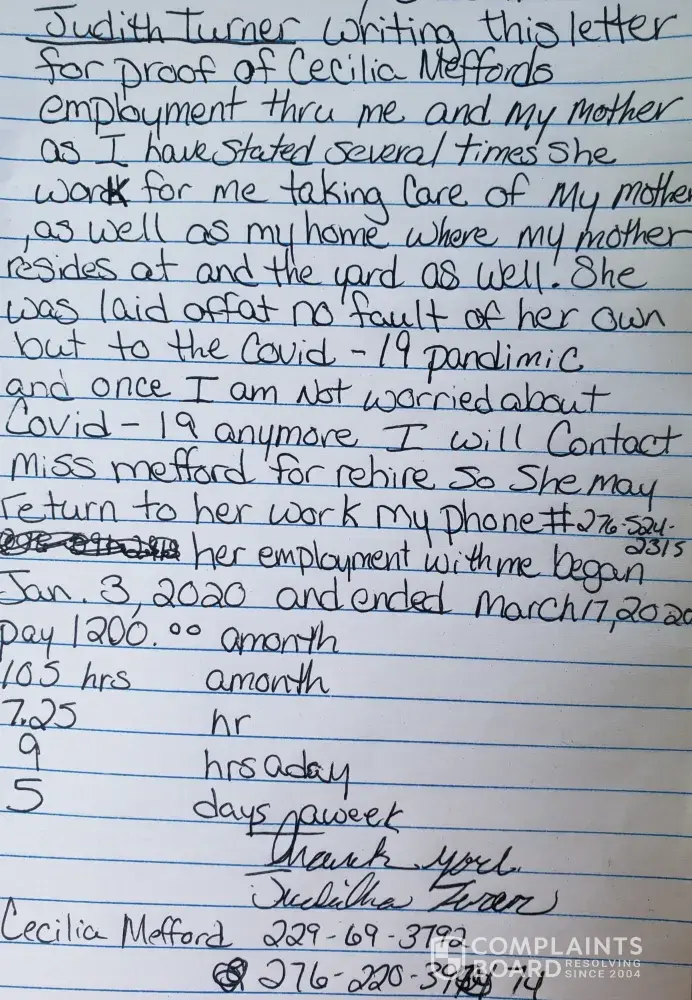 Judith Turner writing this letter
for proof of Cecilia Meffords
employment thru me and my mother
as I have stated several times she
work for me taking care of my mother
, as well as my home where my mother
resides at and the yard as well. She
was laid off at no fault of her own
but to the Covid - 19 pandimic
and once I am not worried about
Covid - 19 anymore I will contact
miss mefford for rehire so she may
return to her work my phone # 276-524-
2315
her employment with me began
Jan. 3, 2020 and ended March 17, 2020
pay 1200.00 amonth
105 hrs amonth
7.25 hr
9 hrs aday
5 days aweek
Thank you.
Cecilia Mefford 229-69-3792
276-220-39 74
COMPLAINTS
BOARD RESOLVING
SINCE 2004